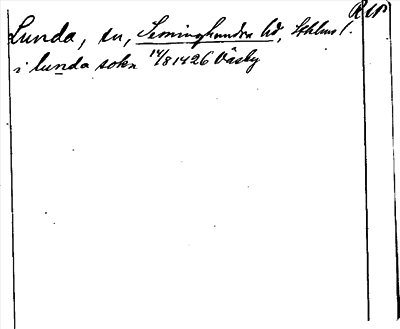 Lunda, sn, Seminghundra hd, Sthlms l.
i lunda sokn 14/8 1426 Väsby